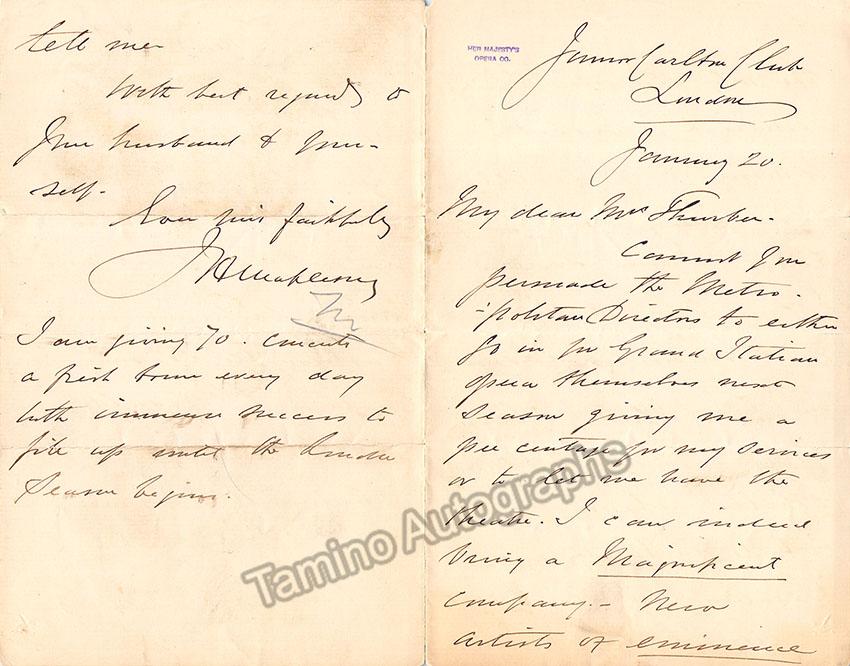 HER MAJESTY'S
OPERA CO.
Junior Carlton Club
London
January 20.
My dear Mrs Thurber-
Cannot you
persuade the Metro-
-politan Directors to either
go in for Grand Italian
opera themselves next
season giving me a
per centage for my services
or to let me have the
theatre. I can indeed
bring a Magnificent
company - New
artists of eminence
tell me
With best regards to
your husband & your-
self-
Ever yours faithfully
JHMapleson
I am giving 70. concerts
a fresh town every day
with immense success to
fill up until the London
Season begins.
Tamino Autographs